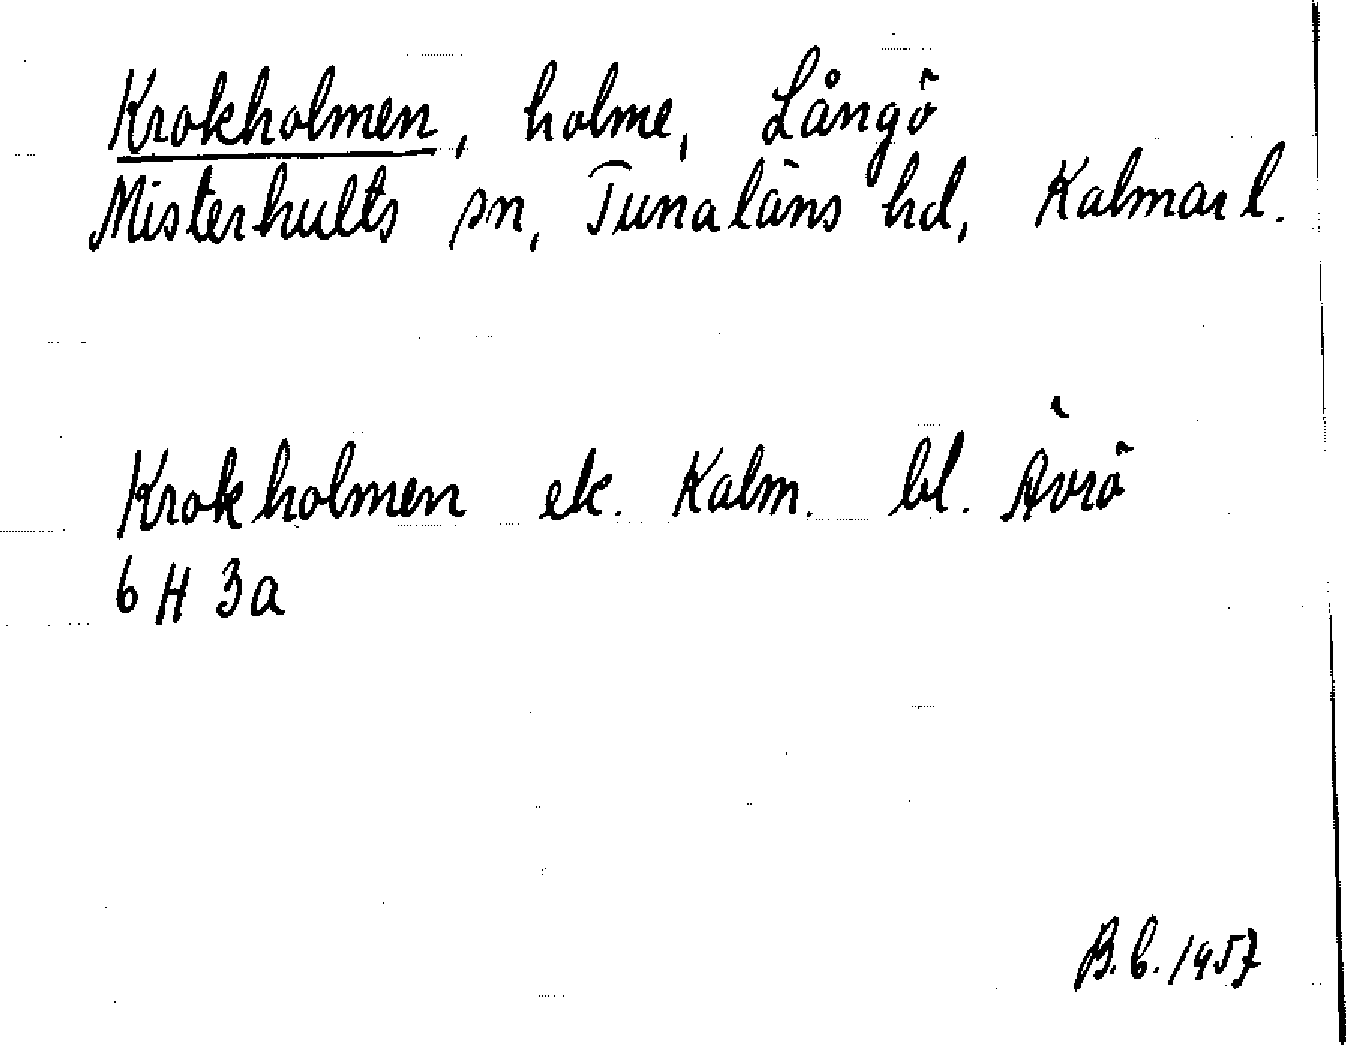 Krokholmen, holme, Långö
Misterhults sn, Tunaläns hd, Kalmar l.
Krokholmen ek. Kalm. bl. Ävrö
6 H 3a
B.b. 1957